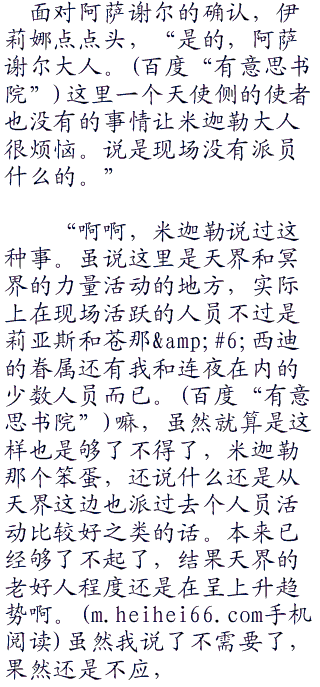 面对阿萨谢尔的确认，伊
莉娜点点头，“是的，阿萨
谢尔大人。(百度“有意思书
院”)这里一个天使侧的使者
也没有的事情让米迦勒大人
很烦恼。说是现场没有派员
什么的。”
“啊啊，米迦勒说过这
种事。虽说这里是天界和冥
界的力量活动的地方，实际
上在现场活跃的人员不过是
莉亚斯和苍那&amp;#6;西迪
的眷属还有我和连夜在内的
少数人员而已。(百度“有意
思书院”)嘛，虽然就算是这
样也是够了不得了，米迦勒
那个笨蛋，还说什么还是从
天界这边也派过去个人员活
动比较好之类的话。本来已
经够了不起了，结果天界的
老好人程度还是在呈上升趋
势啊。(m.heihei66.com手机
阅读)虽然我说了不需要了，
果然还是不应，